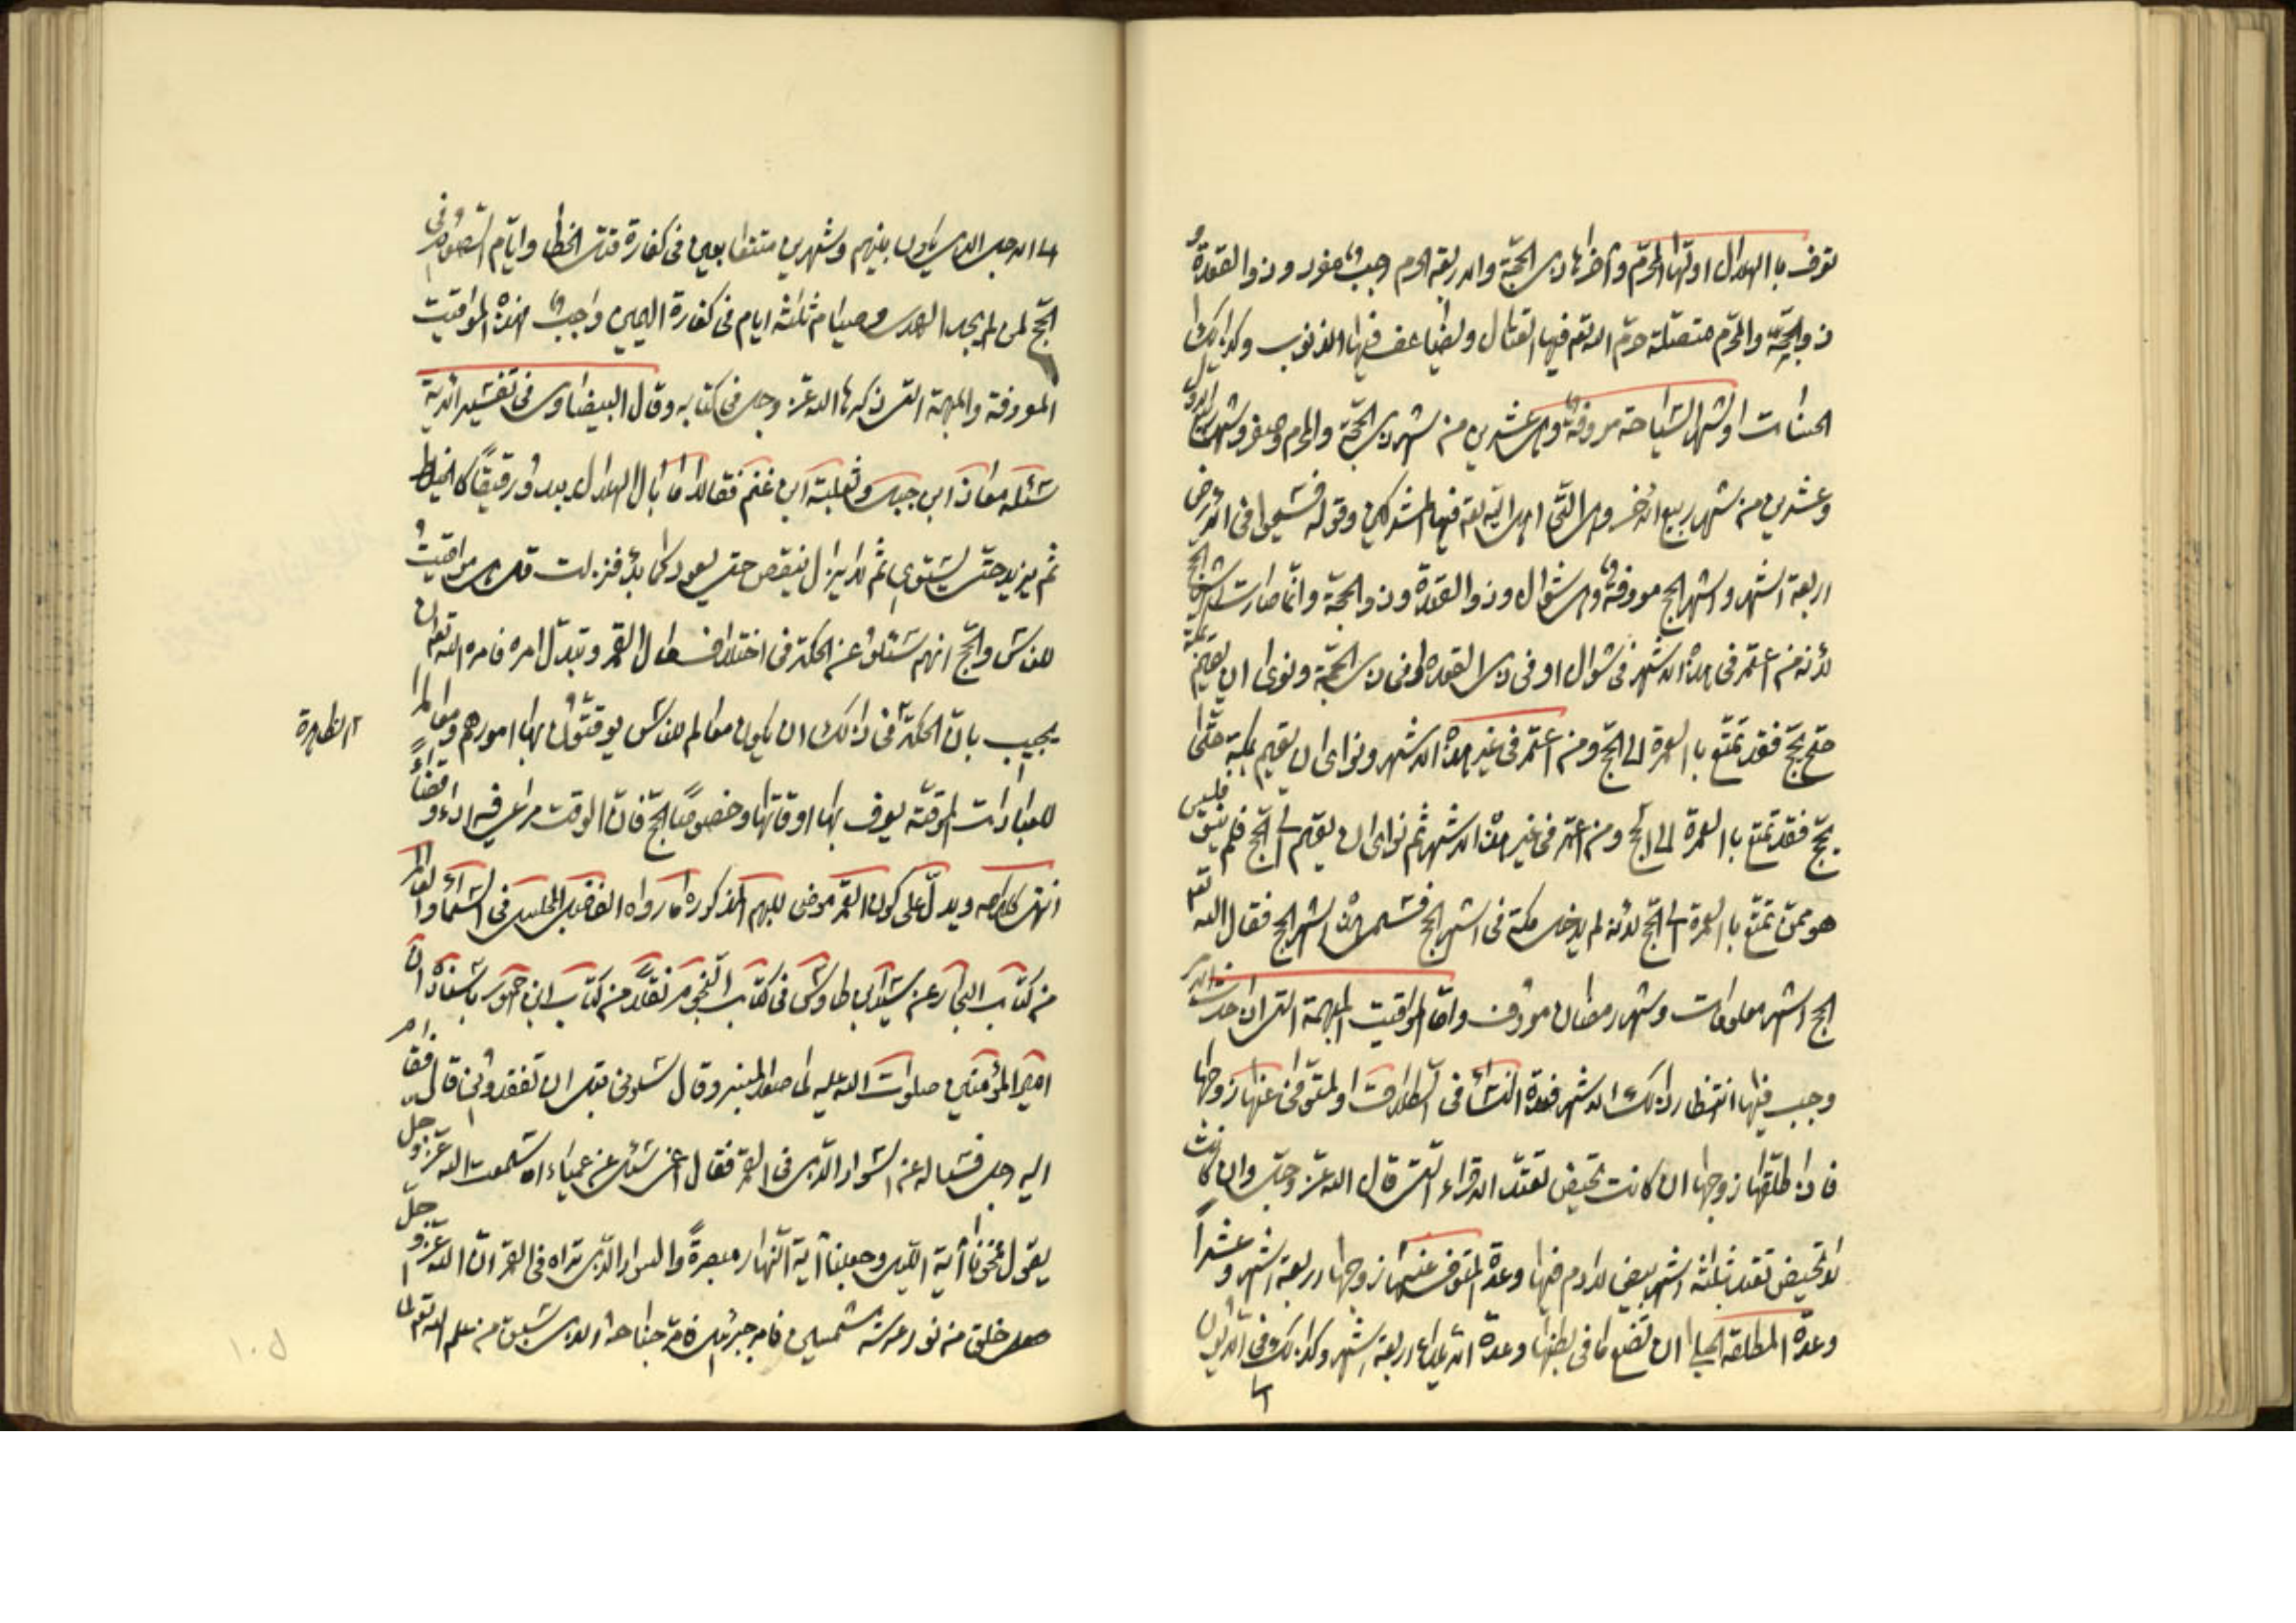 تعرف با الهلال اولها المحرّم واخرها ذى الحجّة والاربعة الحرم رجب مفرد وذو القعدة و
ذو الحجّة والمحرّم متصلة حرّم الله تعه فيها القتال ويضاعف فيها الذنوب وكذالك
الحسنات واشهر السّياحة معروفة وهى عشرين من شهر ذى الحجّة والمحرم وصفر وشهر ربيع الاول
وعشرين من شهر ربيع الاخر وهى التّى فيها المشركين وقوله فسيحوا فى الأرض
اربعة اشهر واشهر الحج معروفة وهى شوّال وذو القعدة وذو الحجّة وانّما صارت اشهر الحج
لأنه من اعتمر فى هذه الاشهر فى شوال او فى ذى القعده او فى ذى الحجّة ونوى ان يقيم بمكّة
حتى يحجّ فقد تمتّع با العمرة الى الحجّ ومن اعتمر فى غير هذه الاشهر ونواى ان يقيم بمكة حتّى
يحجّ فقد تمتع با العمرة الى الحج ومن اعتمر فى غير هذه الاشهر ثم نواى ان يقيم الى الحجّ فلم فليس
هو ممن تمتّع با العمرة الى الحجّ لأنه لم يدخل مكة فى اشهر الحج فسمى هذه اشهر الحج فقال الله تعه
الحج اشهر معلومات وشهر رمضان معروف وامّا المواقيت المبهمة التى
وجب فيها انتظار ذالك الاشهر فعدة النّساء فى الطلاق والمتوّفى عنها زوجها
فاذا طلّقها زوجها ان كانت تحيض تعتدّ الاقراء التّى قال الله عزّ وجلّ وان كانت
لا تحيض تعتد ثلثه اشهر بيض لا دم فيها وعدّة المتوفى عنها زوجها اربعة اشهر وعشراً
وعدّة المطلقة الحبلى ان تضع ما فى بطنها وعدّة الأيلاء اربعة اشهر وكذالك فى الديون
الى الاجل الذى يكون بينهم وشهرين متتابعين فى كفارة قتل الخطا وايّام الصّوم فى
الحجّ لمن لم يجد الهدى وصيام ثلثه ايام فى كفارة اليمين واجب فهذه المواقيت
المعروفة والمبهمة التى ذكرها الله عزّ وجل فى كتابه وقال البيضاوى فى تفسير الآية
سئله معاذ ابن جبل وثعلبة ابن غنم فقالا ما بال الهلال يبدو رقيقاً كالخيط
ثم يزيد حتّى يستوى ثم لا يزال ينقص حتى يعود كما بدأ فنزلت قل هى مواقيت
للناس والحجّ انهم سئلوا عن الحكمة فى اختلاف حال القمر وتبدّل امره فامره الله تعه ان
يجيب بانّ الحكمة فى ذالك ان يكون معالم للناس يوقتون بها امورهم ومعالم
الظاهرة
للعبادات الموقتّة يعرف بها اوقاتها وخصوصاً الحجّ فانّ الوقت مراعى فيه اداءً وقضاءً
انتهى كلامه ويدلّ على كون القمر للبهم المذكورة ما رواه الفاضل المجلسى فى السّماء والعالم
من كتاب البحار عن سيّد ابن طاوس فى كتاب النّجوم نقلاً من كتاب ابن جمهور باسناده انّ
امير المؤمنين صلوات الله عليه لما صعد المنبر وقال سلونى قبل ان تفقدونى قال فقام
اليه رجل فسئاله عن السّواد الّذى فى القمر فقال اعمى سئل عن عمياء اما سمعت الله عزّ وجلّ
يقول فمحونا آية الليل وجعلنا آية النّهار مبصرةً والسواد الّذى تراه فى القمر انّ الله عزّ وجلّ
خلق من نور عرشه شمسين فامر جبرئيل فامرّ جناحه الذى سبق من علم الله تعه لما